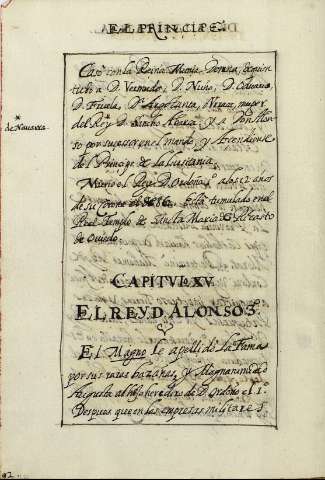 EL PRINCIPE
Casó con la Reina Munia Dorena, de quien
tubo a D. Vermudo, D. Nuño, D. Odoario,
D. Fruela, Dª
del Rey D. Sancho Abarca, y a Don Alon-
so por sucesor en el mando, y Ascendiente
del Principe de la Lusitania.
* de Navarra
Murio el Rey D. Ordoño 1º a los 12 años
de su Reino el de 862. Está tumulado en el
Real Templo de Santa Maria de el Casto
de Oviedo.
CAPITVL. XV
EL REY D ALONSO 3º
El Magno le apellidó la Fama
por sus raras hazañas, y Magnanimidad
al hijo heredero de D. Ordoño el I.
Despues que en las empresas militares